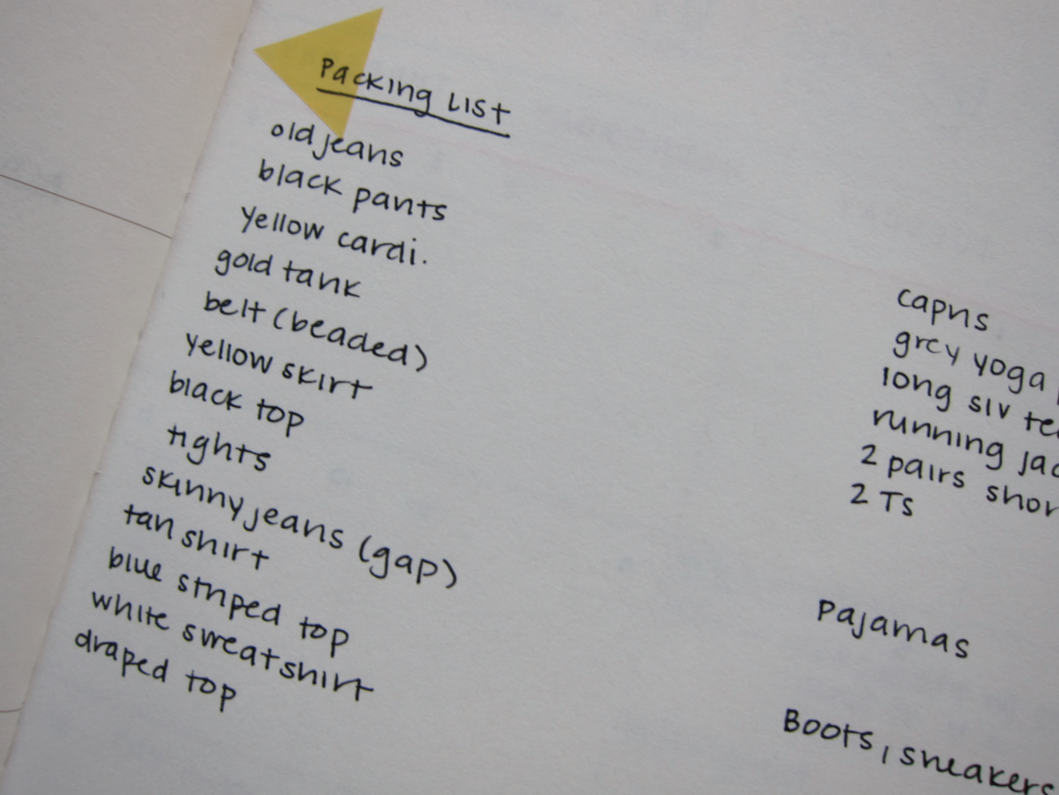 Packing List
old jeans
black pants
yellow cardi.
gold tank
belt (beaded)
yellow skirt
black top
tights
skinny jeans (gap)
tan shirt
blue striped top
white sweatshirt
draped top
capris
grey yoga
long slv
running
2 pairs
2 Ts
Pajamas
Boots, sneakers